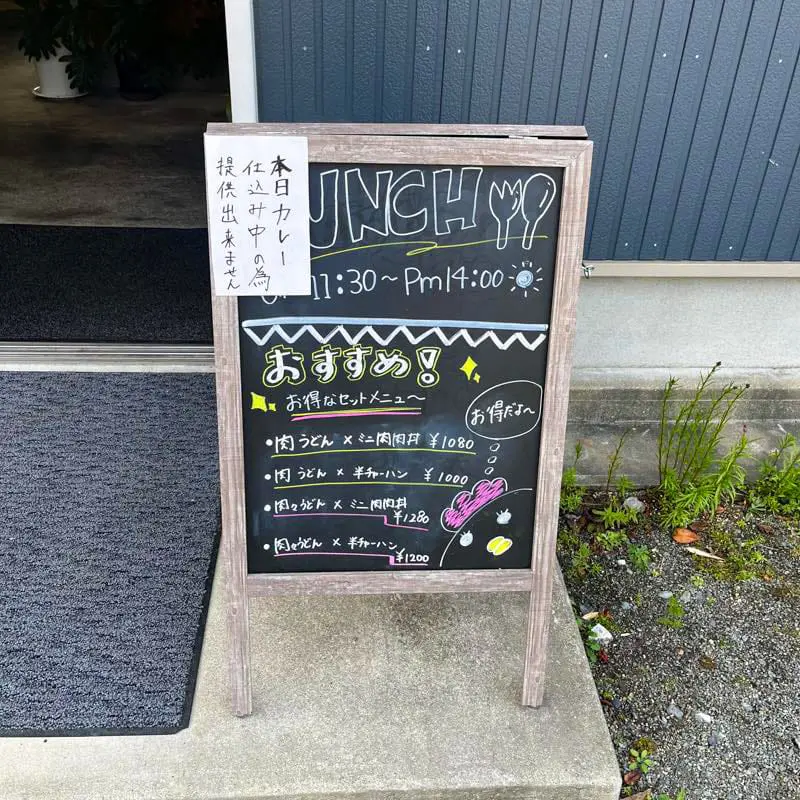 本日カレー
仕込み中の為
提供出来ません
UNCH
11:30～Pm14:00
おすすめ!
お得なセットメニュー～
お得だよ～
・肉うどん × ミニ肉肉丼 ¥1080
・肉うどん × 半チャーハン ¥1000
・肉々うどん × ミニ肉肉丼 ¥1280
・肉々うどん × 半チャーハン ¥1200